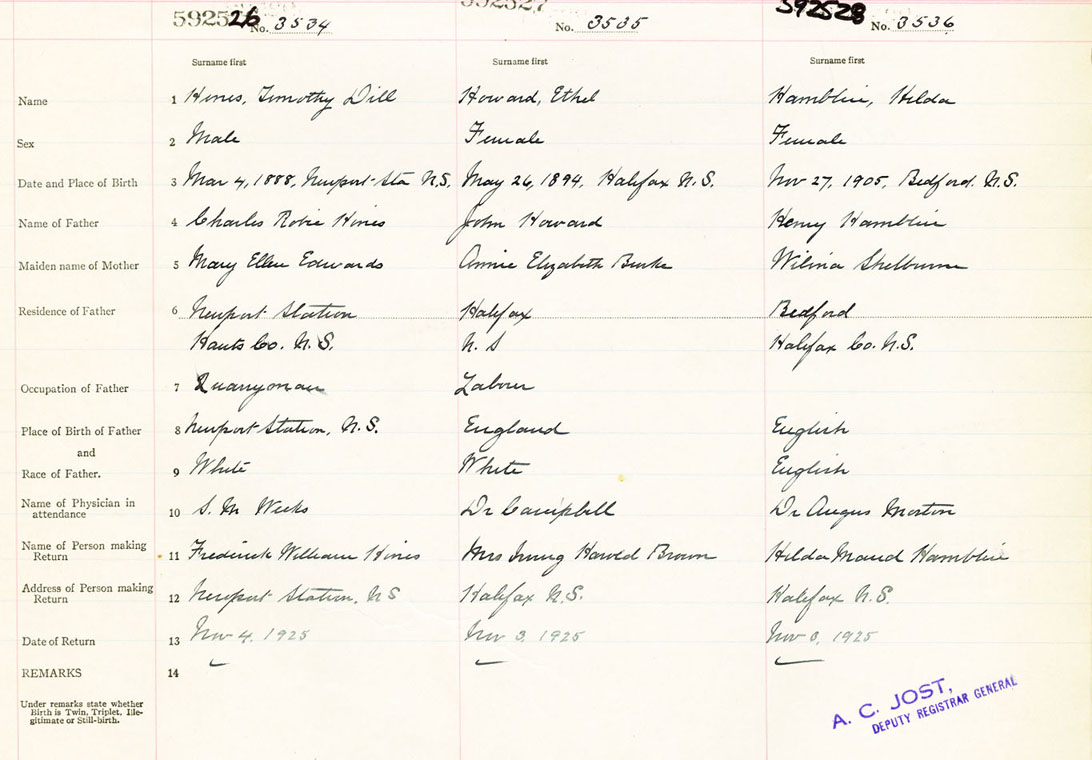 5925226 No. 3534 592527 No. 3535 592528 No. 3536
Surname first Surname first Surname first
Name 1 Hines, Timothy Dill Howard, Ethel Hamblin, Hilda
Sex 2 Male Female Female
Date and Place of Birth 3 Mar 4, 1888, Newport Sta N.S. May 26, 1894, Halifax N.S. Nov 27, 1905, Bedford. N.S.
Name of Father 4 Charles Robie Hines John Howard Henry Hamblin
Maiden name of Mother 5 Mary Ellen Edwards Annie Elizabeth Burke Wilina Shelbourne
Residence of Father 6 Newport Station Halifax Bedford
Hants Co. N.S. N.S Halifax Co. N.S.
Occupation of Father 7 Quarryman Labour
Place of Birth of Father 8 Newport Station, N.S. England English
and
Race of Father. 9 White White English
Name of Physician in
attendance 10 S. M Weeks Dr Campbell Dr Angus Morton
Name of Person making
Return 11 Frederick William Hines Mrs Irving Harold Brown Hilda Maud Hamblin
Address of Person making
Return 12 Newport Station, NS Halifax N.S. Halifax N.S.
Date of Return 13 Nov 4, 1925 Nov 3, 1925 Nov 3, 1925
REMARKS 14
Under remarks state whether
Birth is Twin, Triplet, Ille-
gitimate or Still-birth.
A. C. JOST,
DEPUTY REGISTRAR GENERAL